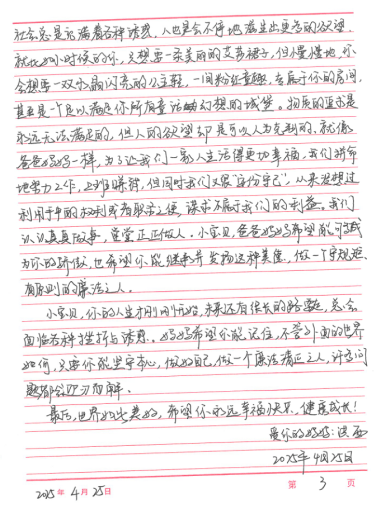 社会总是充满着各种诱惑，人也是会不停地滋生出更高的欲望，
就比如小时候的你，只想要一条美丽的艾莎裙子，但慢慢地，你
会想要一双水晶闪亮的公主鞋，一间粉红童趣，专属于你的房间，
甚至是一个足以满足你所有童话幻想的城堡。物质的追求是
永远无法满足的，但人的欲望却是可以人为克制的，就像
爸爸妈妈一样，为了让我们一家人生活得更加幸福，我们拼命
地努力工作，上班赚钱，但同时我们又很“安份守己”，从未想过
利用手中的权利或者职务之便，谋求不属于我们的利益。我们
认认真真做事，堂堂正正做人。小宝贝，爸爸妈妈希望能可以成
为你的骄傲，也希望你能继承并发扬这种美德，做一个守规矩、
有原则的廉洁之人。
小宝贝，你的人生才刚刚开始，未来还有很长的路要走，总会
面临各种挫折与诱惑。妈妈希望你能记住，不管外面的世界
如何，只要你能坚守本心，做好自己，做一个廉洁清正之人，许多问
题都会迎刃而解。
最后，世界如此美好，希望你永远幸福快乐，健康成长！
爱你的妈妈：洪
2025年4月25日
2025年4月25日
第 3 页